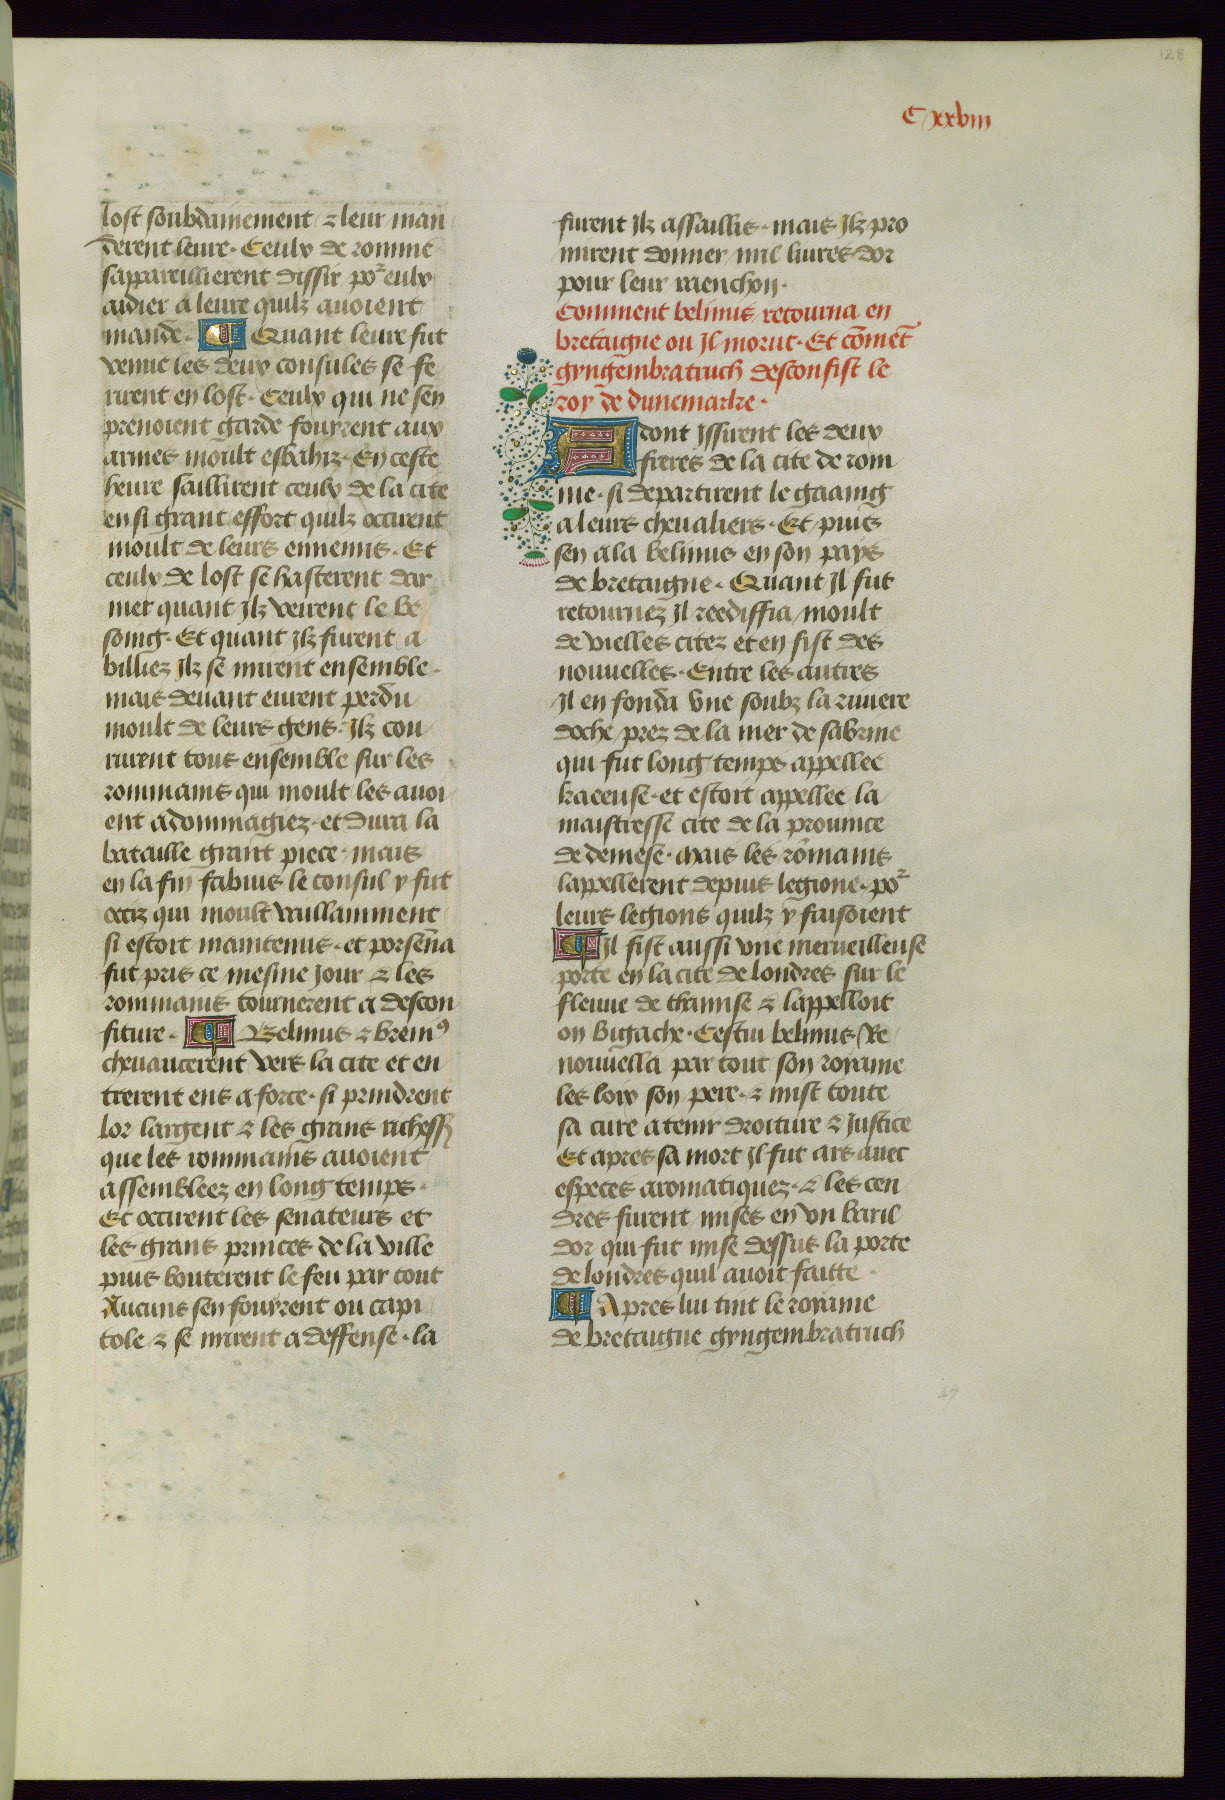 128
C xxviii
lost soubdainement / & leur man
derent leure. Ceulx de romme
sappareillierent dissir po^r eulx
aidier a leure quilz auoient
mande. Quant leure fut
venue les deux consules se fe
rirent en lost. Ceulx qui ne sen
prenoient garde fouyrent aux
armes moult esbahiz. En ceste
heure saillirent ceulx de la cite
en si grant effort quilz occirent
moult de leurs ennemis. Et
ceulx de lost se hasterent dar
mer quant Ilz veirent le be
soing. Et quant Ilz furent a
billiez Ilz se mirent ensemble.
mais deuant eurent perdu
moult de leurs gens. Ilz cou
rurent tous ensemble sur les
rommains qui moult les auoi
ent adommagiez. et dura la
bataille grant piece. mais
en la fin fabius le consul y fut
occiz qui moult vaillamment
si estoit maintenus. et porsēna
fut pris ce mesme Jour & les
rommains tournerent a descon
fiture. Belinus & brem⁹
cheuaucerent vers la cite et en
trerent ens a force. si prindrent
lor largent & les grans richess
que les rommains auoient
assembleez en long temps.
Et occirent les senateurs et
les grans princes de la ville
puis bouterent le feu par tout
Aucuns sen fouyrent ou capi
tole & se mirent a deffense. la
furent Ilz assaillis. mais Ilz pro
mirent donner mil liures dor
pour leur raenchon.
Comment belinus retourna en
bretaigne ou Il morut. Et cōmēt
gyngembratruch desconfist le
roy de dunemarke.
Adont Issirent les deux
freres de la cite de rom
me. si departirent le gaaing
a leurs cheualiers. Et puis
sen ala belinus en son pays
de bretaigne. Quant Il fut
retournez Il reediffia moult
de vielles citez et en fist des
nouuelles. Entre les autres
Il en fonda vne soubz la riuiere
doche prez de la mer de sabrine
qui fut long temps appellee
kaeeuse. et estoit appellee la
maistresse cite de la prouince
de demese. Mais les rōmains
lappellerent depuis legione. po^r
leurs legions quilz y faisoient
Il fist aussi vne merueilleuse
porte en la cite de londres sur le
fleuue de thamise & lappelloit
on Bugache. Cestui belinus Re
nouuella par tout son royame
les loix son pere. & mist toute
sa cure a tenir droiture & Justice
Et apres sa mort Il fut ars auec
especes aromatiquez. & les cen
dres furent mises en vn baril
dor qui fut mise dessus la porte
de londres quil auoit faitte.
Apres lui tint le royame
de bretaigne gyngembratruch